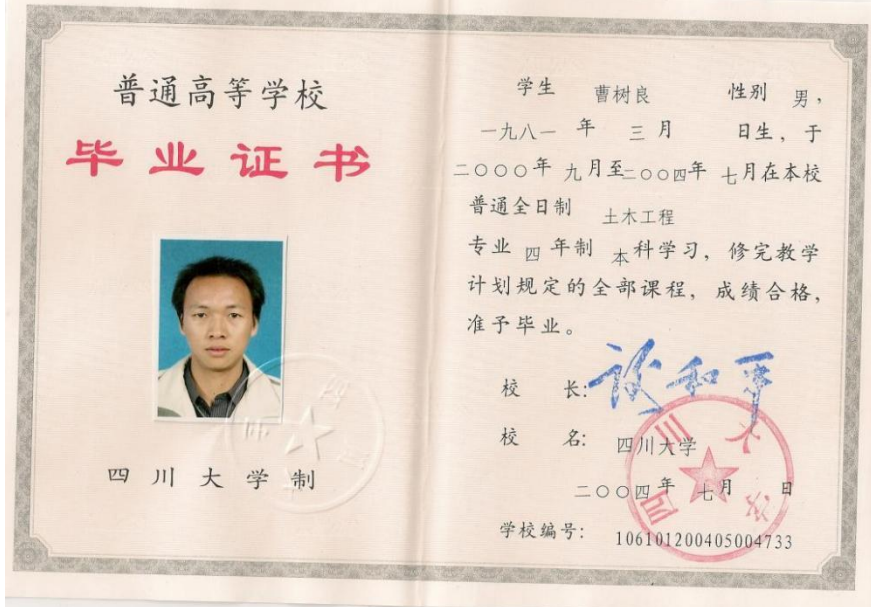 普通高等学校
毕业证书
四川大学制
学生 曹树良 性别 男，
一九八一 年 三 月 日生，于
二〇〇〇年 九月至二〇〇四年 七月在本校
普通全日制 土木工程
专业 四 年制 本科学习，修完教学
计划规定的全部课程，成绩合格，
准予毕业。
校 长:
校 名: 四川大学
二〇〇四年 七月 日
学校编号: 106101200405004733